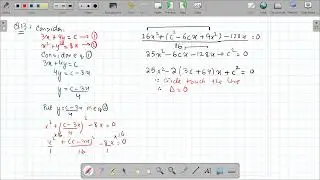 Q13: Consider,
3x + 4y = c → ①
x² + y² = 8x → ②
Consider eq ①
3x + 4y = c
4y = c - 3x
y = c - 3x / 4
Put y = c - 3x / 4 in eq ②
x² + (c - 3x / 4)² - 8x = 0
x²×16 / 1 + (c - 3x)² / 16 - 8x×16 / 1 = 0
16x² + (c² - 6cx + 9x²) - 128x / 16 = 0
25x² - 6cx - 128x + c² = 0
25x² - 2(3c + 64)x + c² = 0
∵ circle touch the line
∴ Δ = 0